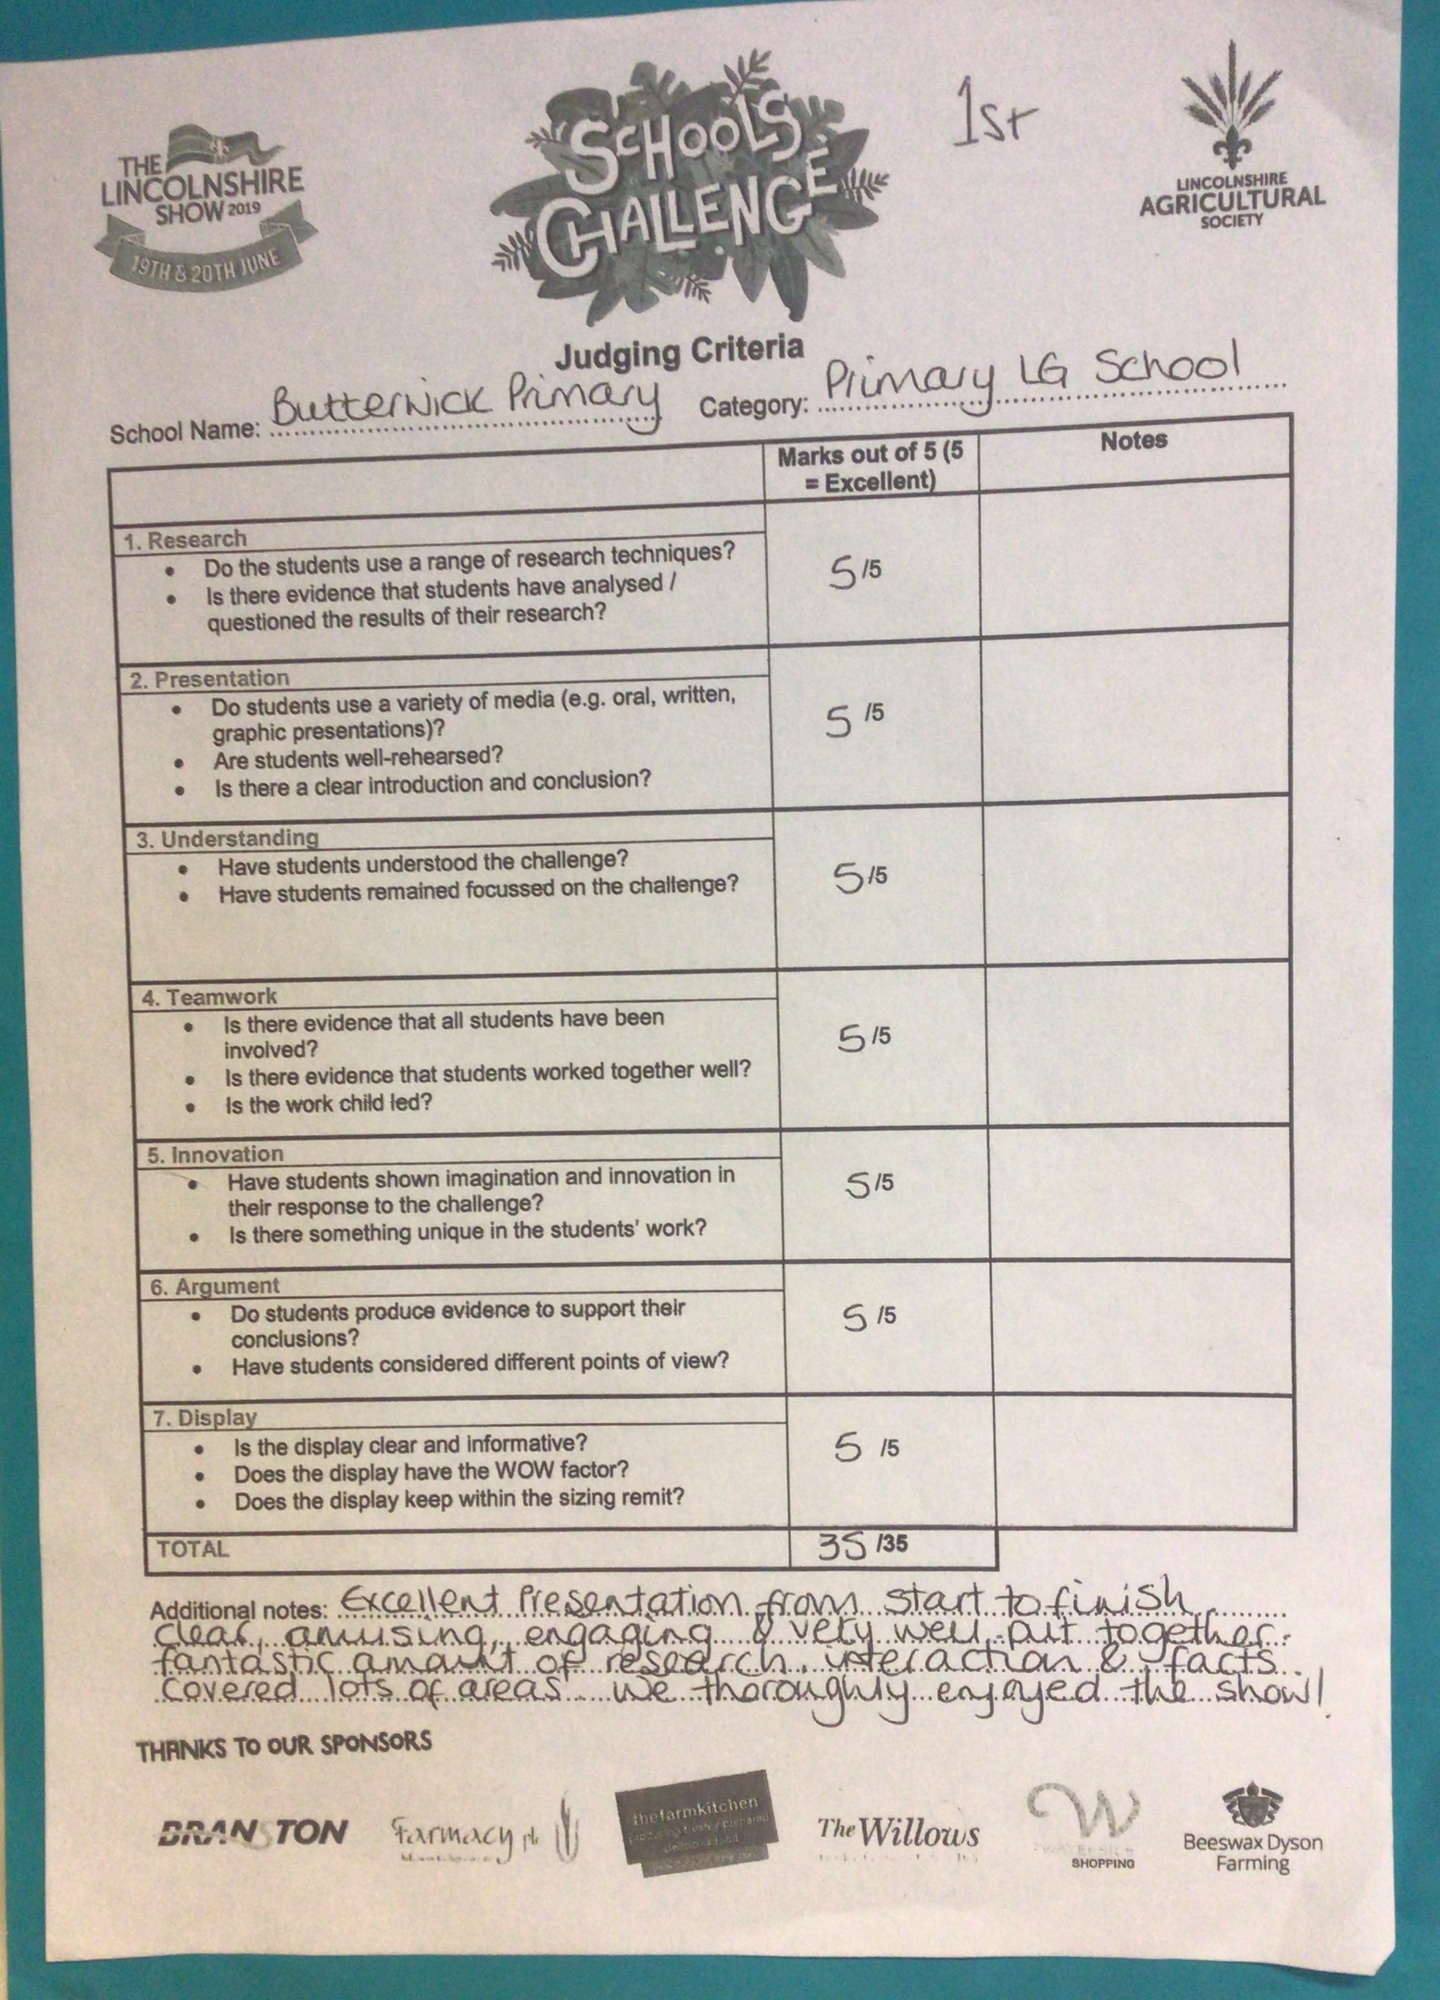 THE
LINCOLNSHIRE
SHOW 2019
19TH & 20TH JUNE
SCHOOLS
CHALLENGE
1st
LINCOLNSHIRE
AGRICULTURAL
SOCIETY
Judging Criteria
School Name: Butterwick Primary Category: Primary LG School
Marks out of 5 (5
= Excellent)
Notes
1. Research
• Do the students use a range of research techniques?
• Is there evidence that students have analysed /
questioned the results of their research?
5 /5
2. Presentation
• Do students use a variety of media (e.g. oral, written,
graphic presentations)?
• Are students well-rehearsed?
• Is there a clear introduction and conclusion?
5 /5
3. Understanding
• Have students understood the challenge?
• Have students remained focussed on the challenge?
5 /5
4. Teamwork
• Is there evidence that all students have been
involved?
• Is there evidence that students worked together well?
• Is the work child led?
5 /5
5. Innovation
• Have students shown imagination and innovation in
their response to the challenge?
• Is there something unique in the students' work?
5 /5
6. Argument
• Do students produce evidence to support their
conclusions?
• Have students considered different points of view?
5 /5
7. Display
• Is the display clear and informative?
• Does the display have the WOW factor?
• Does the display keep within the sizing remit?
5 /5
TOTAL 35 /35
Additional notes: Excellent Presentation from start to finish
clear, amusing, engaging & very well put together.
fantastic amount of research, interaction & facts.
Covered lots of areas. We thoroughly enjoyed the show!
THANKS TO OUR SPONSORS
BRANSTON
Farmacy plc
thefarmkitchen
The Willows
W
SHOPPING
Beeswax Dyson
Farming